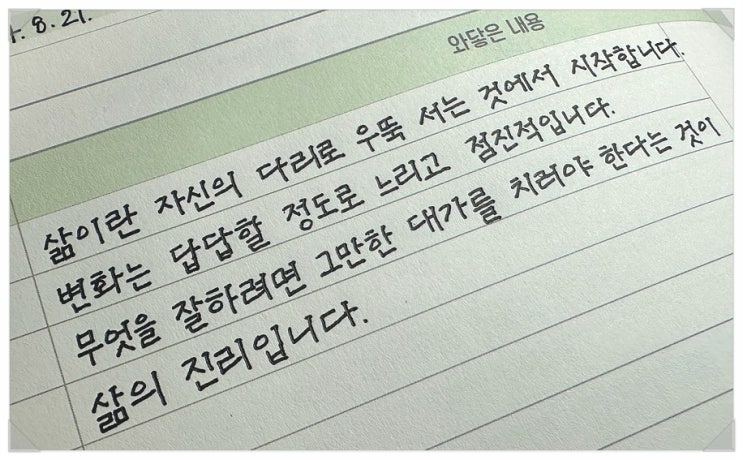 8.21.
와닿은 내용
삶이란 자신의 다리로 우뚝 서는 것에서 시작합니다.
변화는 답답할 정도로 느리고 점진적입니다.
무엇을 잘하려면 그만한 대가를 치러야 한다는 것이
삶의 진리입니다.